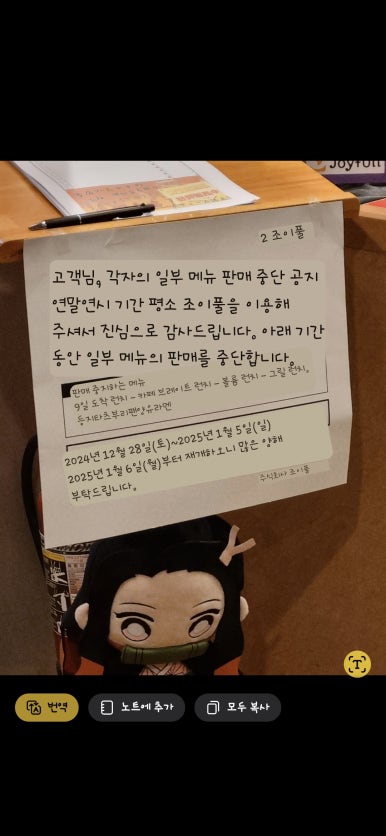 Joyfull
2 조이풀
고객님, 각자의 일부 메뉴 판매 중단 공지
연말연시 기간 평소 조이풀을 이용해
주셔서 진심으로 감사드립니다. 아래 기간
동안 일부 메뉴의 판매를 중단합니다.
판매 중지하는 메뉴
9일 도착 런치 - 카페 브레이트 런치 - 볼륨 런치 - 그릴 런치.
등지타츠부리팬앙유라멘
2024년 12월 28일(토)~2025년 1월 5일(일)
2025년 1월 6일(월)부터 재개하오니 많은 양해
부탁드립니다.
주식회사 조이풀
번역
노트에 추가
모두 복사